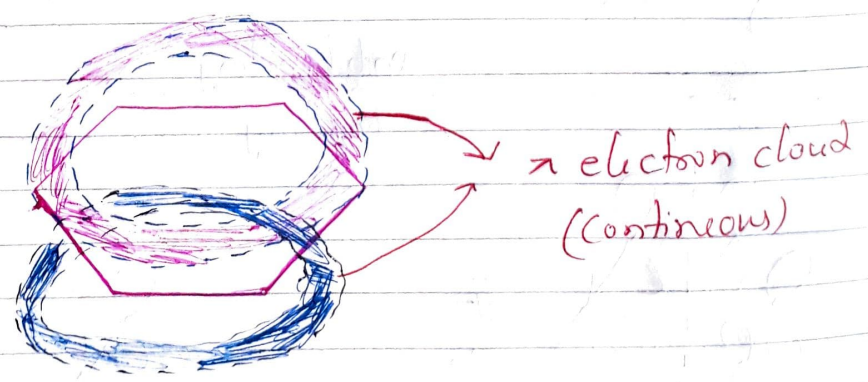 π electron cloud
(contineous)